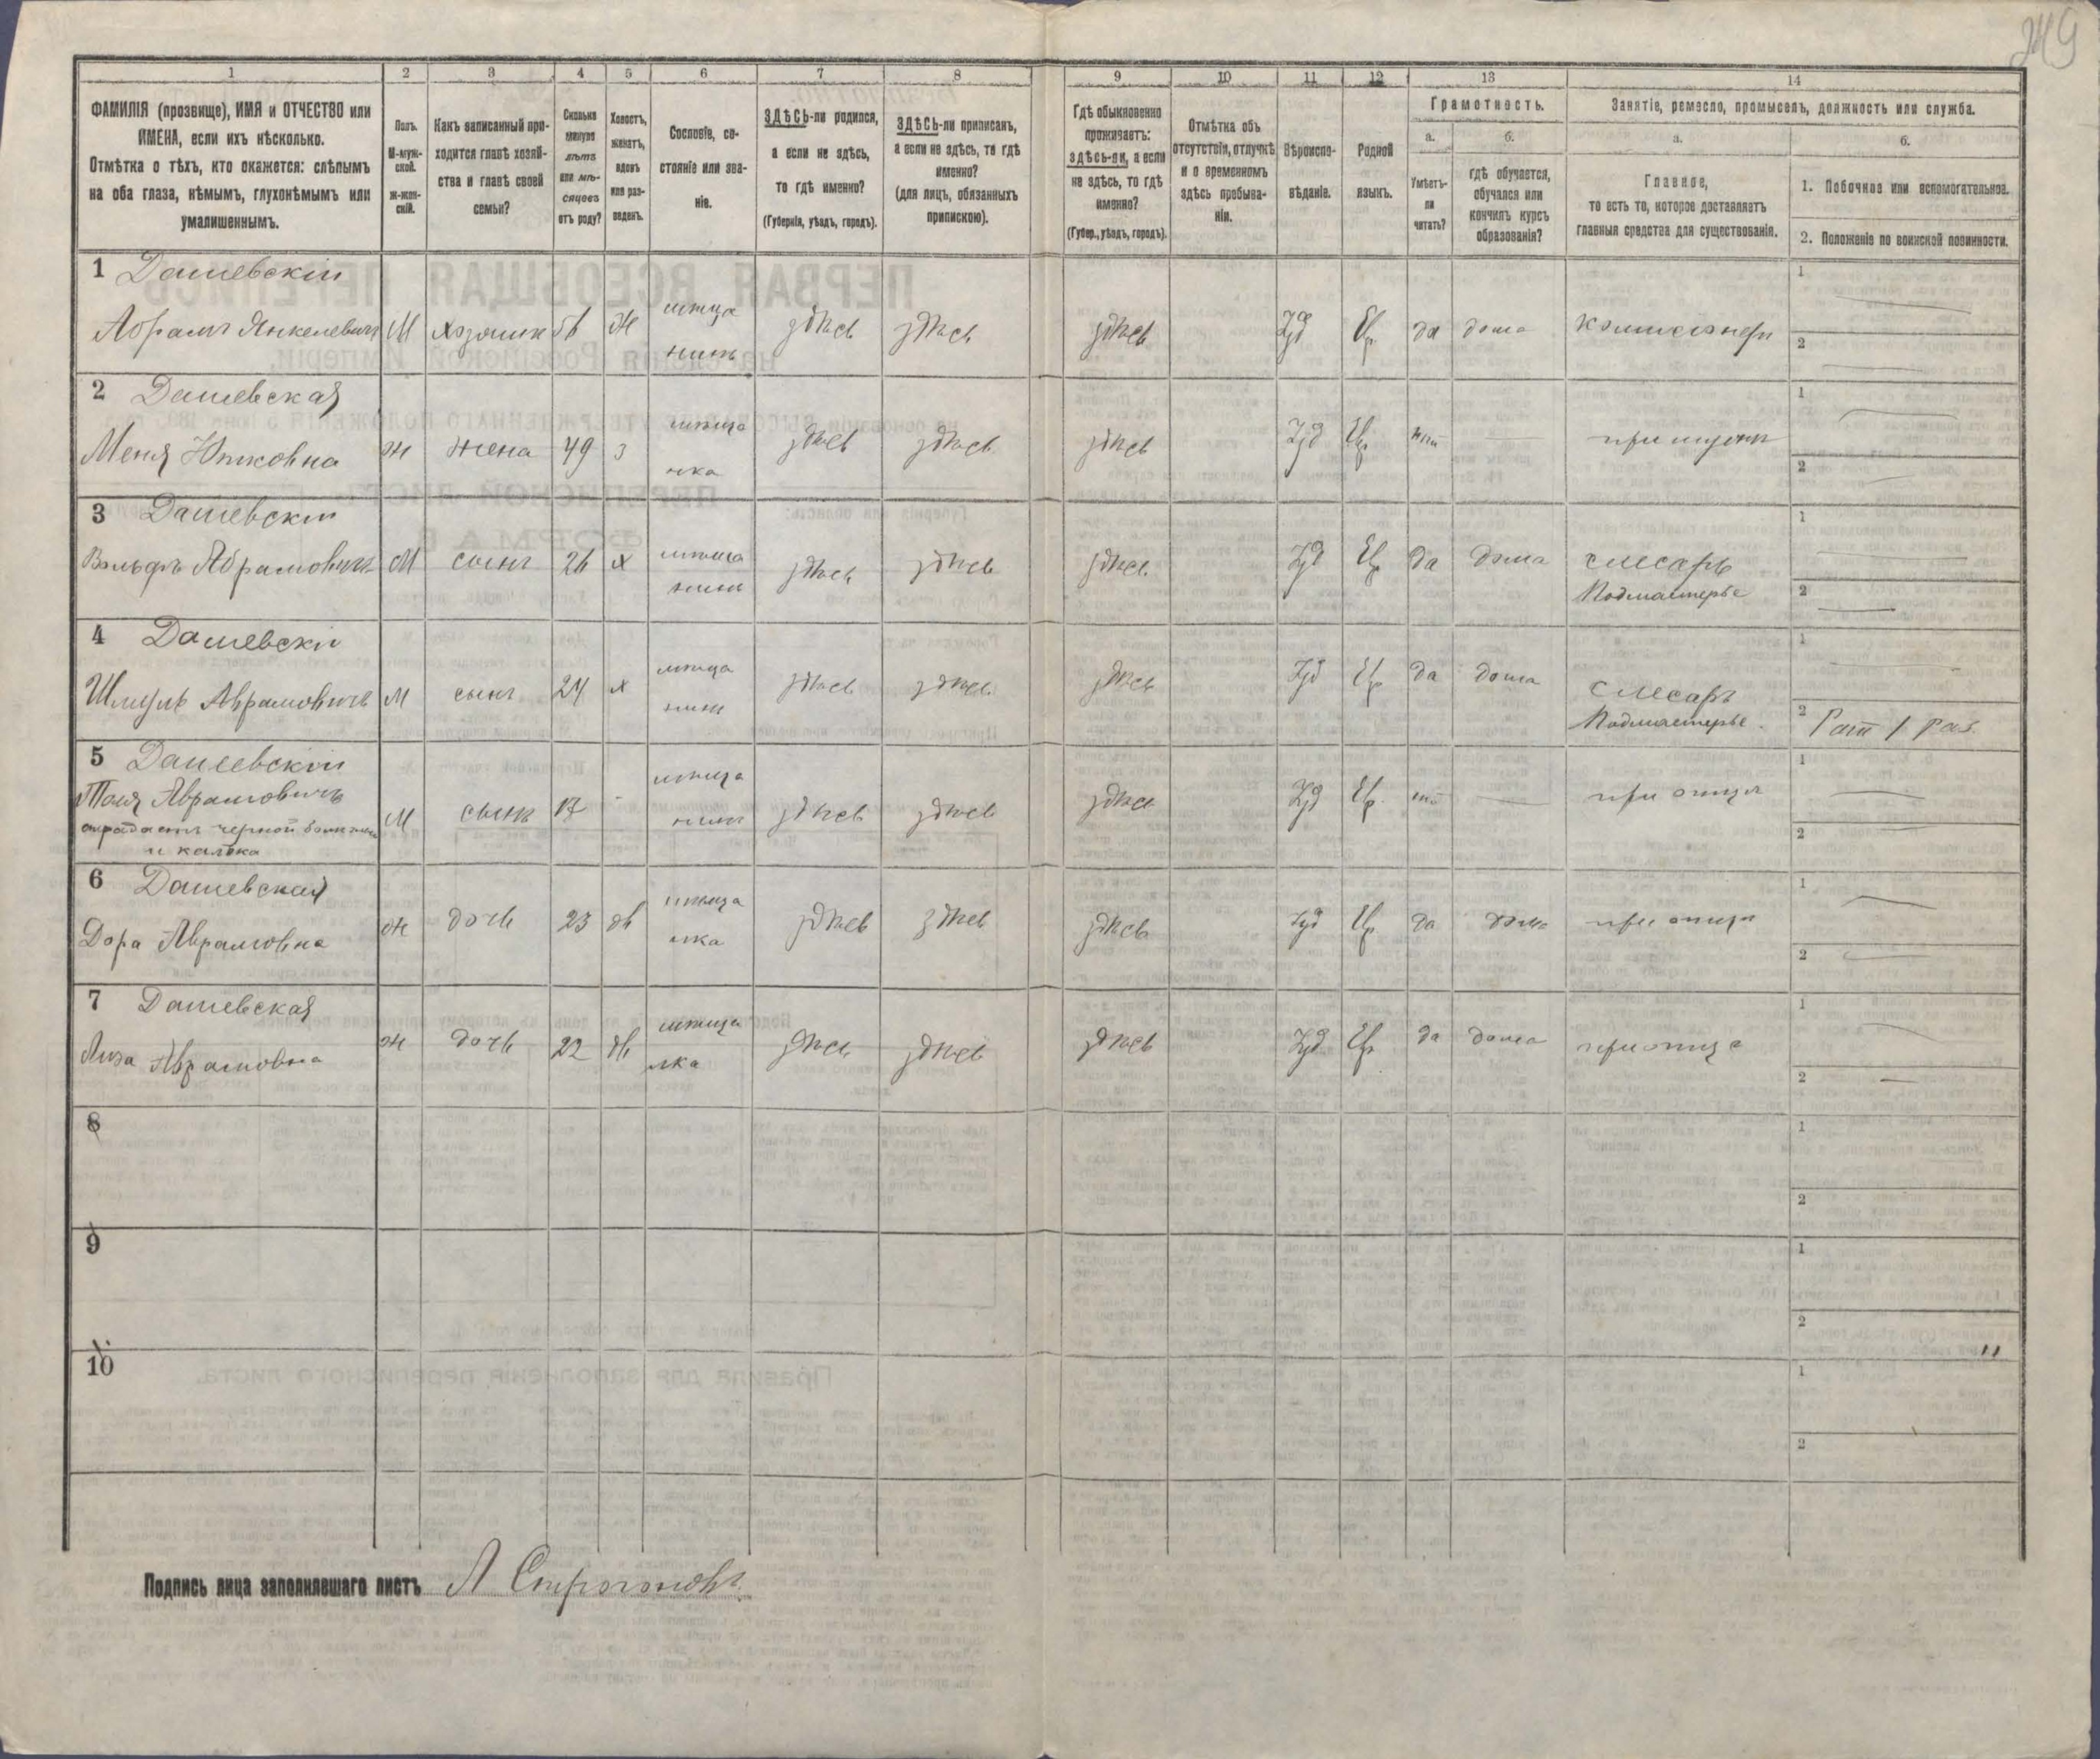 249
1
2
3
4
5
6
7
8
9
10
11
12
13
14
ФАМИЛІЯ (прозвище), ИМЯ и ОТЧЕСТВО или
ИМЕНА, если ихъ нѣсколько.
Отмѣтка о тѣхъ, кто окажется: слѣпымъ
на оба глаза, нѣмымъ, глухонѣмымъ или
умалишеннымъ.
Полъ.
М-муж-
ской.
ж-жен-
скій.
Какъ записанный при-
ходится главѣ хозяй-
ства и главѣ своей
семьи?
Сколько
минуло
лѣтъ
или мѣ-
сяцевъ
отъ роду?
Холостъ,
женатъ,
вдовъ
или раз-
веденъ.
Сословіе, со-
стояніе или зва-
ніе.
ЗДѢСЬ-ли родился,
а если не здѣсь,
то гдѣ именно?
(Губернія, уѣздъ, городъ).
ЗДѢСЬ-ли приписанъ,
а если не здѣсь, то гдѣ
именно?
(для лицъ, обязанныхъ
припискою).
Гдѣ обыкновенно
проживаетъ:
здѣсь-ли, а если
не здѣсь, то гдѣ
именно?
(Губер., уѣздъ, городъ).
Отмѣтка объ
отсутствіи, отлучкѣ
и о временномъ
здѣсь пребыва-
ніи.
Вѣроиспо-
вѣданіе.
Родной
языкъ.
Грамотность.
а.
Умѣетъ-
ли
читать?
б.
гдѣ обучается,
обучался или
кончилъ курсъ
образованія?
Занятіе, ремесло, промыселъ, должность или служба.
а.
Главное,
то есть то, которое доставляетъ
главныя средства для существованія.
б.
1. Побочное или вспомогательное.
2. Положеніе по воинской повинности.
1 Дашевскій
Абрамъ Янкелевичъ М Хозяинъ Ж мѣща нинъ здѣсь здѣсь здѣсь Iуд Евр да дома комиссіонеръ
1
2
2 Дашевская
Меня Ж жена 49 З мѣща нка здѣсь здѣсь здѣсь Iуд Евр нѣт при мужѣ
1
2
3 Дашевскій
Вольфъ Абрамовичъ М сынъ 26 х мѣща нинъ здѣсь здѣсь здѣсь Iуд Евр да дома слесарь
Подмастерье
1
2
4 Дашевскій
Шмуль Аврамовичъ М сынъ 24 х мѣща нинъ здѣсь здѣсь здѣсь Iуд Евр да дома слесарь
Подмастерье.
1
2 Рат 1 раз.
5 Дашевскій
Аврамовичъ
страдаетъ черной
и калѣка
М сынъ 17 - мѣща нинъ здѣсь здѣсь здѣсь Iуд Евр. нѣт при отцѣ
1
2
6 Дашевская
Дора Аврамовна Ж дочь 23 дѣ мѣща нка здѣсь здѣсь здѣсь Iуд Евр да дома при отцѣ
1
2
7 Дашевская
Лиза Аврамовна Ж дочь 22 дѣ мѣща нка здѣсь здѣсь здѣсь Iуд Евр да дома при отцѣ
1
2
8
1
2
9
1
2
10
1
2
Подпись лица заполнявшаго листъ А Строгоновъ